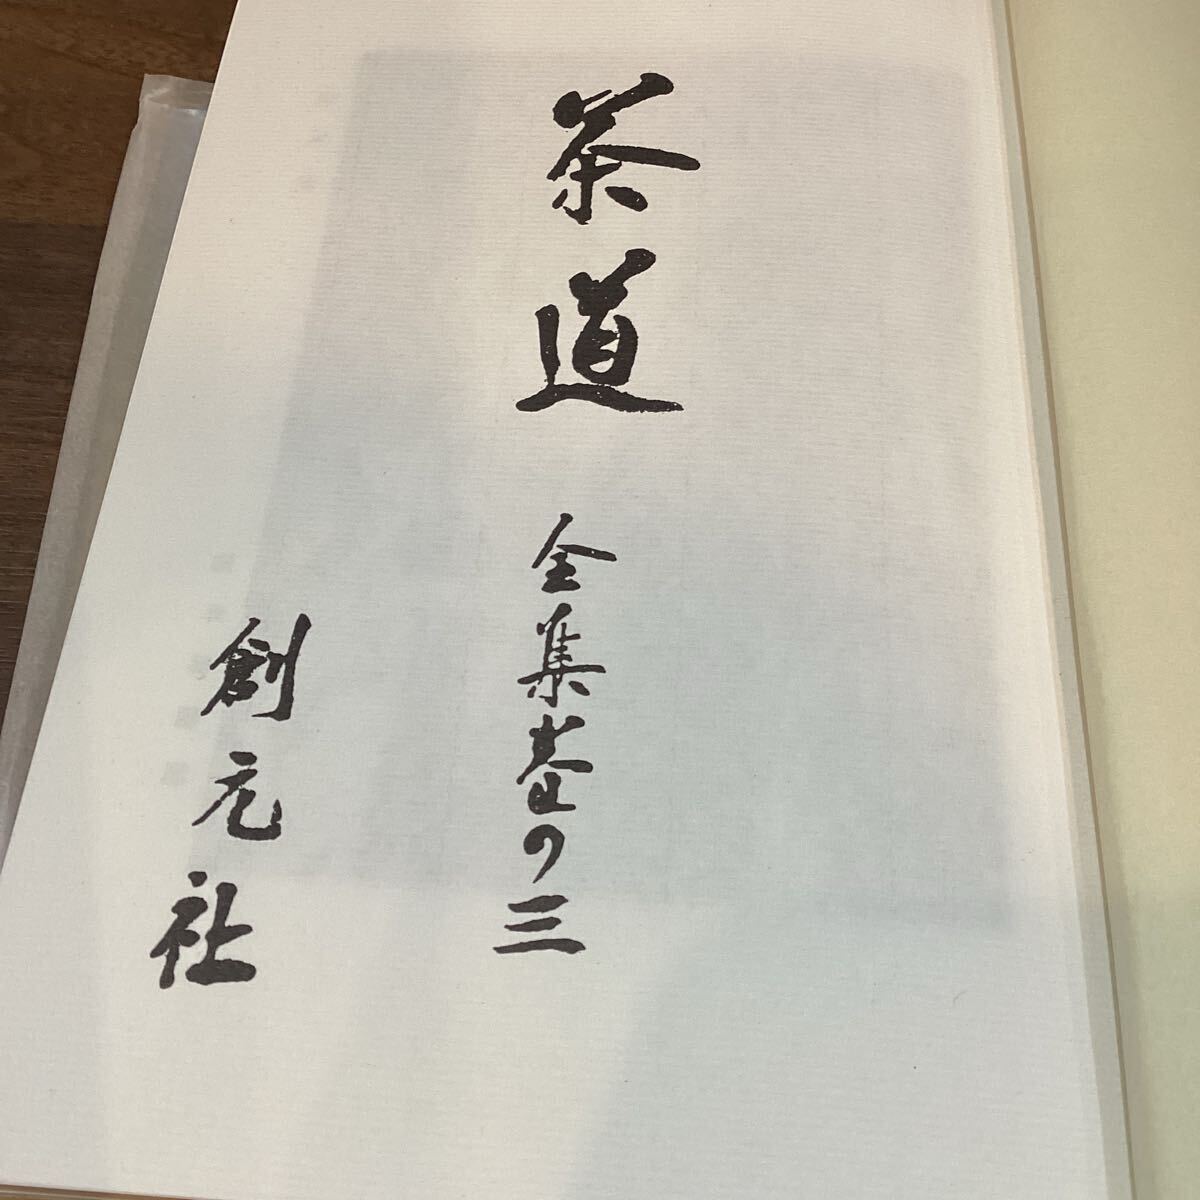 茶道全集巻の三
創元社